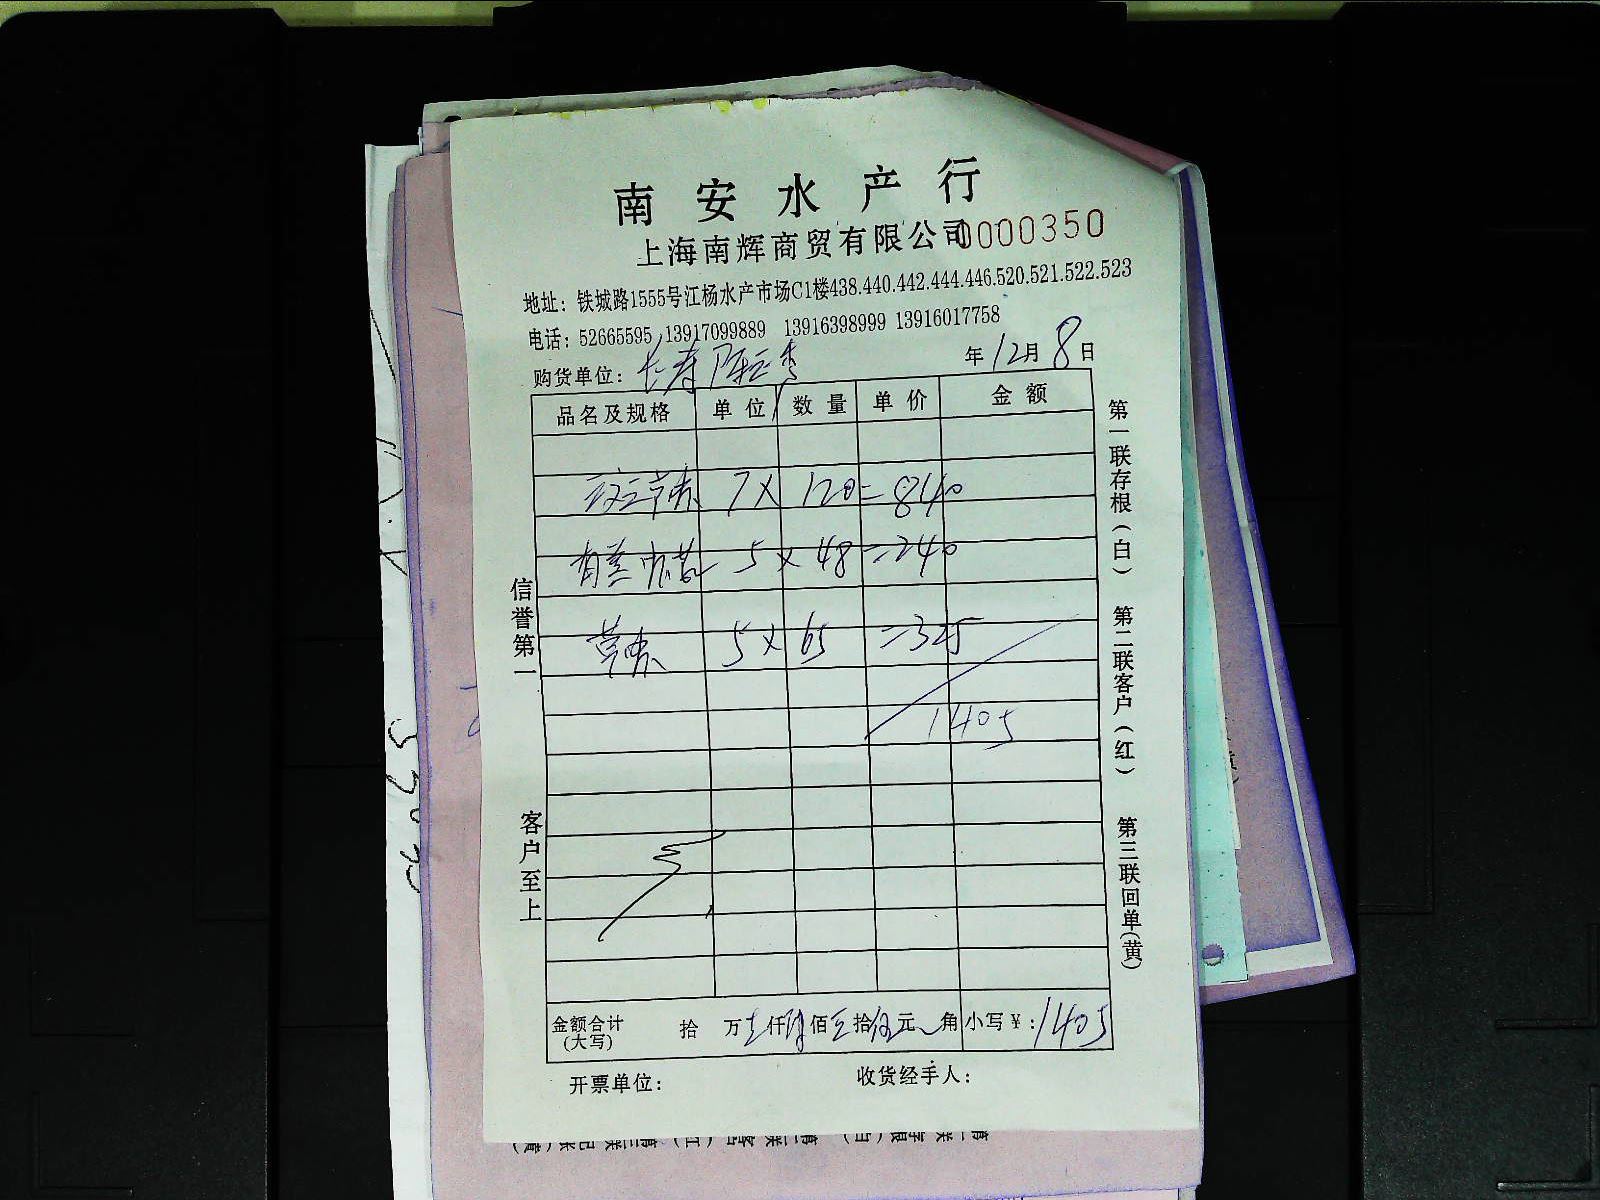 南安水产行
上海南辉商贸有限公司 0000350
地址：铁城路1555号江杨水产市场C1楼438.440.442.444.446.520.521.522.523
电话：52665595 13917099889 13916398999 13916017758
购货单位：长寿 年12月8日
品名及规格 单位 数量 单价 金额
7 X 120 = 840
5 X 48 = 240
5 X 65 = 325
1405
金额合计 拾 万壹仟肆佰 拾伍元 角 小写￥：1405
(大写)
开票单位： 收货经手人：
信誉第一
客户至上
第一联存根（白）
第二联客户（红）
第三联回单（黄）